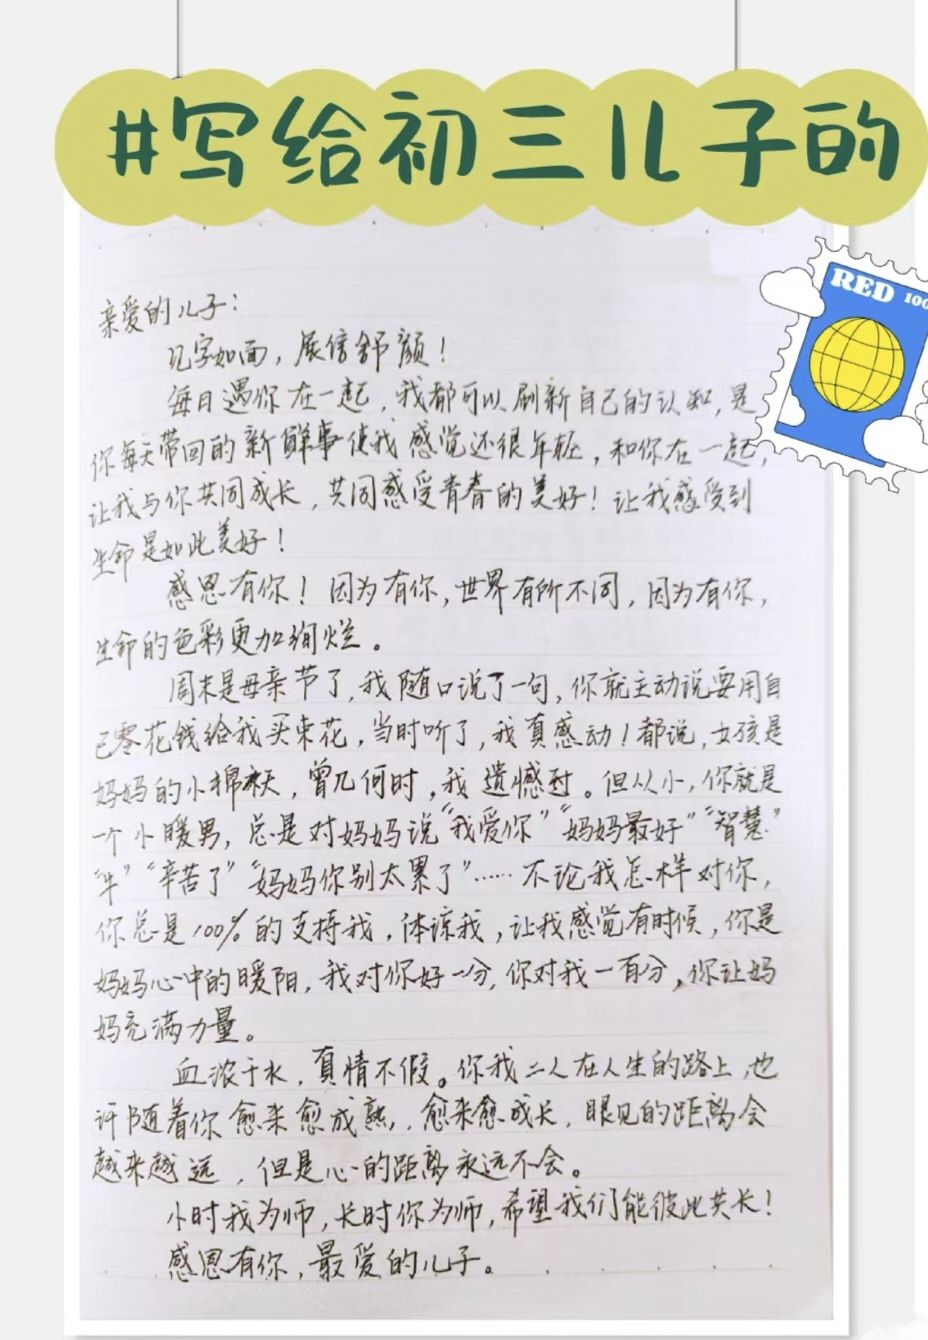 #写给初三儿子的
RED 100
亲爱的儿子：
见字如面，展信舒颜！
每日遇你在一起，我都可以刷新自己的认知，是
你每天带回的新鲜事使我感觉还很年轻，和你在一起，
让我与你共同成长，共同感受青春的美好！让我感受到
生命是如此美好！
感恩有你！因为有你，世界有所不同，因为有你，
生命的色彩更加绚烂。
周末是母亲节了，我随口说了一句，你就主动说要用自
己零花钱给我买束花，当时听了，我真感动！都说，女孩是
妈妈的小棉袄，曾几何时，我遗憾过。但从小，你就是
一个小暖男，总是对妈妈说“我爱你”“妈妈最好”“智慧”
“牛”“辛苦了”“妈妈你别太累了”……不论我怎样对你，
你总是100%的支持我，体谅我，让我感觉有时候，你是
妈妈心中的暖阳，我对你好一分，你对我一百分，你让妈
妈充满力量。
血浓于水，真情不假。你我二人在人生的路上，也
许随着你愈来愈成熟，愈来愈成长，眼见的距离会
越来越远，但是心的距离永远不会。
小时我为师，长时你为师，希望我们能彼此共长！
感恩有你，最爱的儿子。